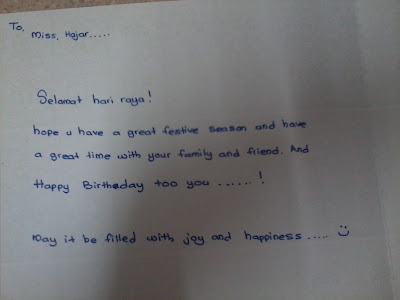 To,
Miss. Hajar.....
Selamat hari raya!
hope u have a great festive season and have
a great time with your family and friend. And
Happy Birthday too you ......!
May it be filled with joy and happiness.....